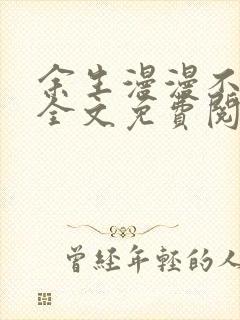 余生漫漫不
全文免費閱
曾經年輕的人